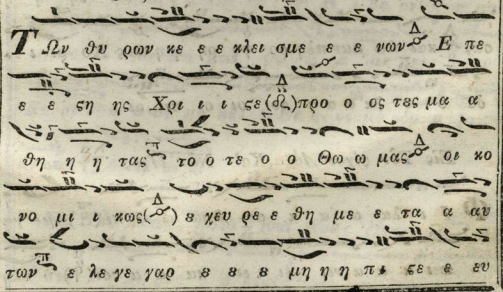 ΤΩν θυ ρων κε ε ε κλει σμε ε ε νων Δ Ε πε
ε ε ςη ης Χρι ι ι ςε( Δ )προ ο ος τες μα α
θη η η τας π το ο τε ο ο Θω ω μας Δ οι κο
νο μι ι κως( Δ ) ε χευ ρε ε θη με ε τα α αυ
των π ε λε γε γαρ ε ε ε μη η η πι ςε ε ευ